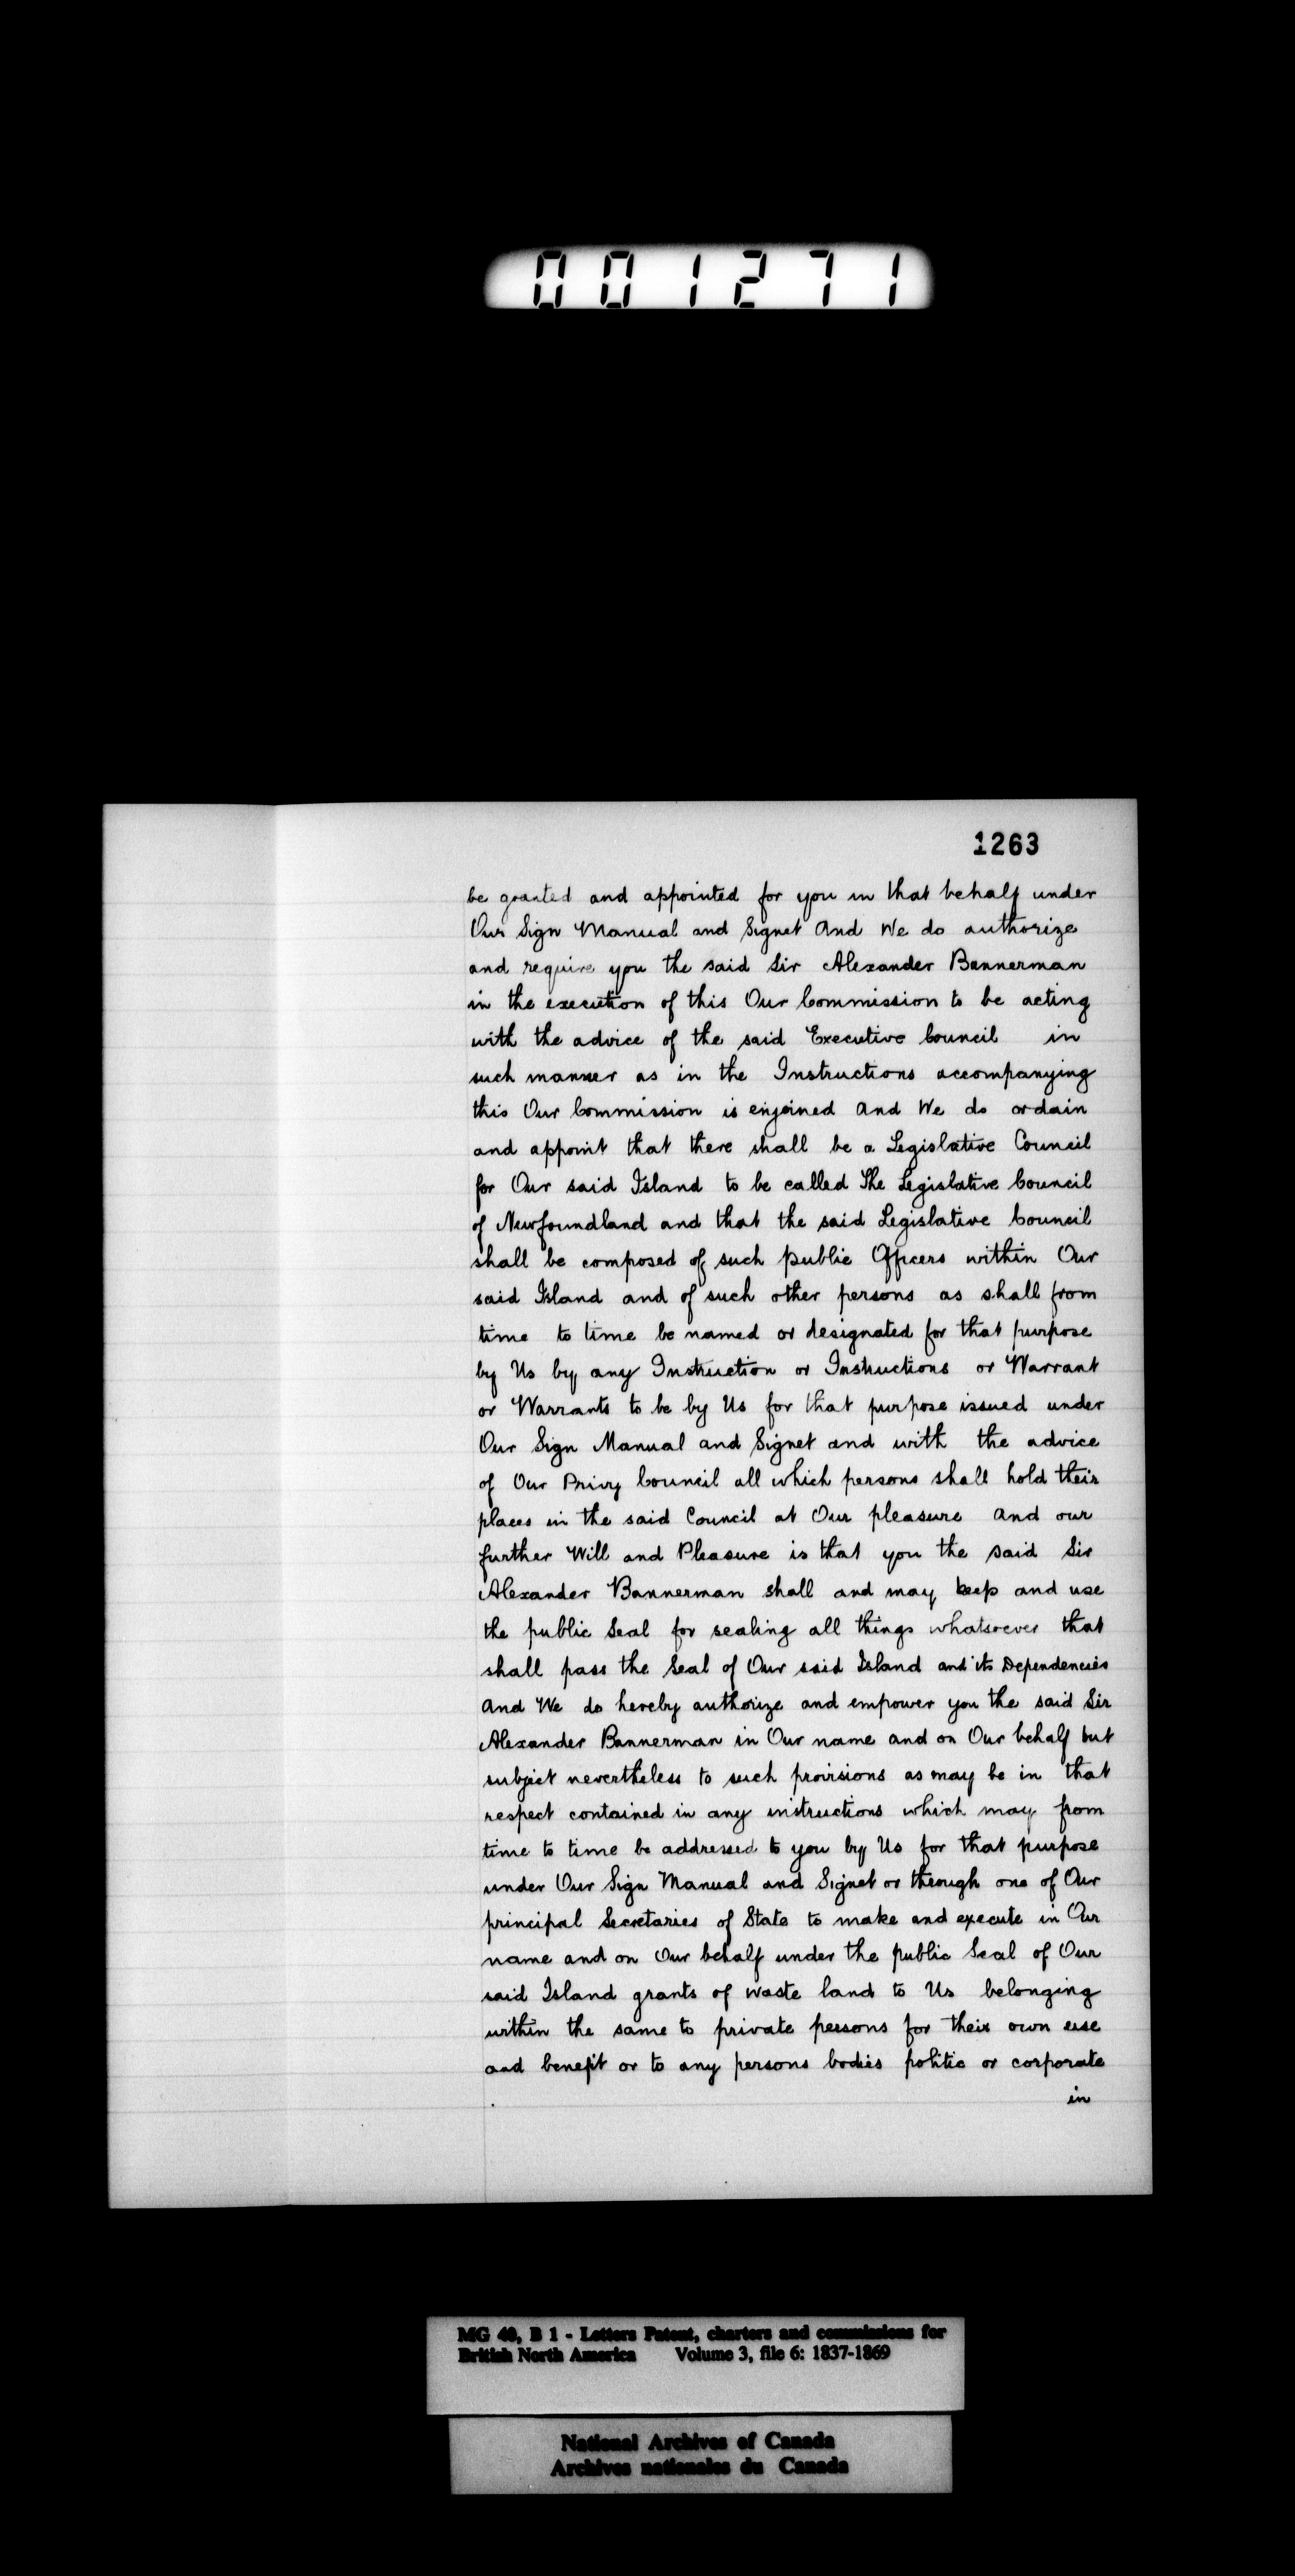 001271
1263
be granted and appointed for you in that behalf under
Our Sign Manual and Signet And We do authorize
and require you the said Sir Alexander Bannerman
in the execution of this Our Commission to be acting
with the advice of the said Executive Council in
such manner as in the Instructions accompanying
this Our Commission is enjoined And We do ordain
and appoint that there shall be a Legislative Council
for Our said Island to be called The Legislative Council
of Newfoundland and that the said Legislative Council
shall be composed of such public Officers within Our
said Island and of such other persons as shall from
time to time be named or designated for that purpose
by Us by any Instruction or Instructions or Warrant
or Warrants to be by Us for that purpose issued under
Our Sign Manual and Signet and with the advice
of Our Privy Council all which persons shall hold their
places in the said Council at Our pleasure And our
further Will and Pleasure is that you the said Sir
Alexander Bannerman shall and may keep and use
the public Seal for sealing all things whatsoever that
shall pass the Seal of Our said Island and its Dependencies
And We do hereby authorize and empower you the said Sir
Alexander Bannerman in Our name and on Our behalf but
subject nevertheless to such provisions as may be in that
respect contained in any instructions which may from
time to time be addressed to you by Us for that purpose
under Our Sign Manual and Signet or through one of Our
principal Secretaries of State to make and execute in Our
name and on Our behalf under the public Seal of Our
said Island grants of waste land to Us belonging
within the same to private persons for their own use
and benefit or to any persons bodies politic or corporate
in
MG 40, B 1 - Letters Patent, charters and commissions for
British North America Volume 3, file 6: 1837-1869
National Archives of Canada
Archives nationales du Canada